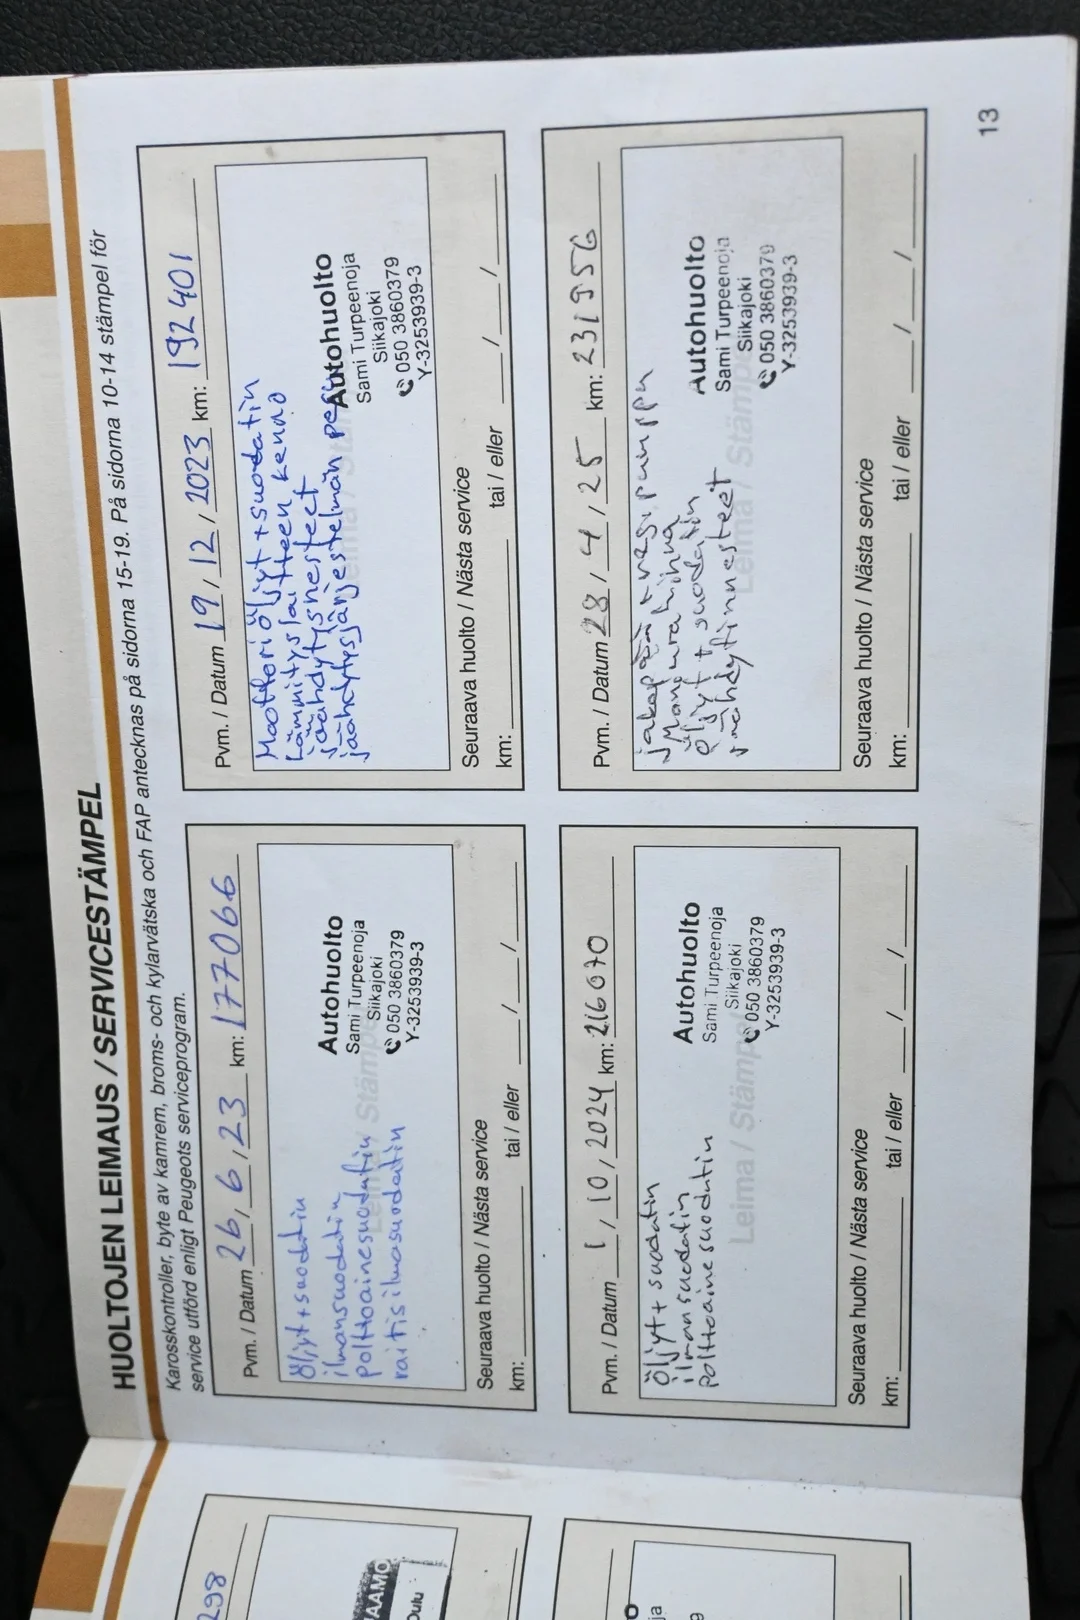 HUOLTOJEN LEIMAUS / SERVICESTÄMPEL
Karosskontroller, byte av kamrem, broms- och kylarvätska och FAP antecknas på sidorna 15-19. På sidorna 10-14 stämpel för
service utförd enligt Peugeots serviceprogram.
Pvm. / Datum 26 / 6 / 23 km: 177066
Öljyt + suodatin
ilmansuodatin
Polttoainesuodatin
raitisilmasuodatin
Leima / Stämpel
Autohuolto
Sami Turpeenoja
Siikajoki
050 3860379
Y-3253939-3
Seuraava huolto / Nästa service
km: tai / eller / /
Pvm. / Datum 19 / 12 / 2023 km: 192401
Moottoriöljyt + suodatin
Lämmityslaitteen kenno
jäähdytysnesteet
jäähdytysjärjestelmän pesu
Autohuolto
Sami Turpeenoja
Siikajoki
050 3860379
Y-3253939-3
Seuraava huolto / Nästa service
km: tai / eller / /
Pvm. / Datum 1 / 10 / 2024 km: 216070
Öljyt + suodatin
ilmansuodatin
polttoainesuodatin
Leima / Stämpel
Autohuolto
Sami Turpeenoja
Siikajoki
050 3860379
Y-3253939-3
Seuraava huolto / Nästa service
km: tai / eller / /
Pvm. / Datum 28 / 4 / 25 km: 231956
jakopää + vesipumppu
hihna
Öljyt + suodatin
Leima / Stämpel
Autohuolto
Sami Turpeenoja
Siikajoki
050 3860379
Y-3253939-3
Seuraava huolto / Nästa service
km: tai / eller / /
13
298
AAMO
Oulu